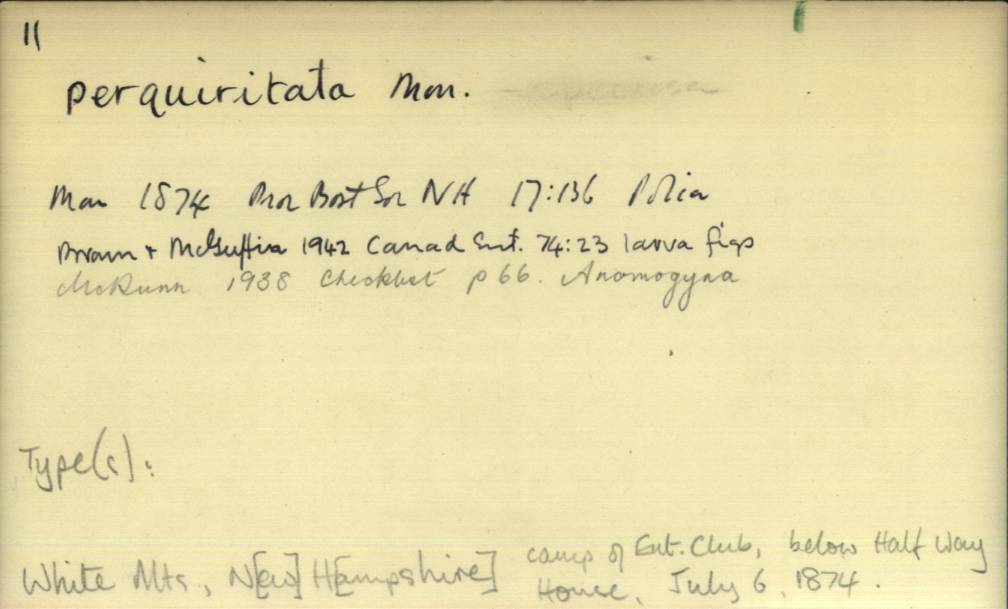 11
perquiritata Morr.
Morr 1874 Proc Bost Soc NH 17:136 Polia
Brown + McGuffin 1942 Canad Ent. 74:23 larva figs
McDunn 1938 Checklist p 66. Anomogyna
Type(s):
White Mts, N[ew] H[ampshire] camp of Ent. Club, below Half Way
House, July 6, 1874.